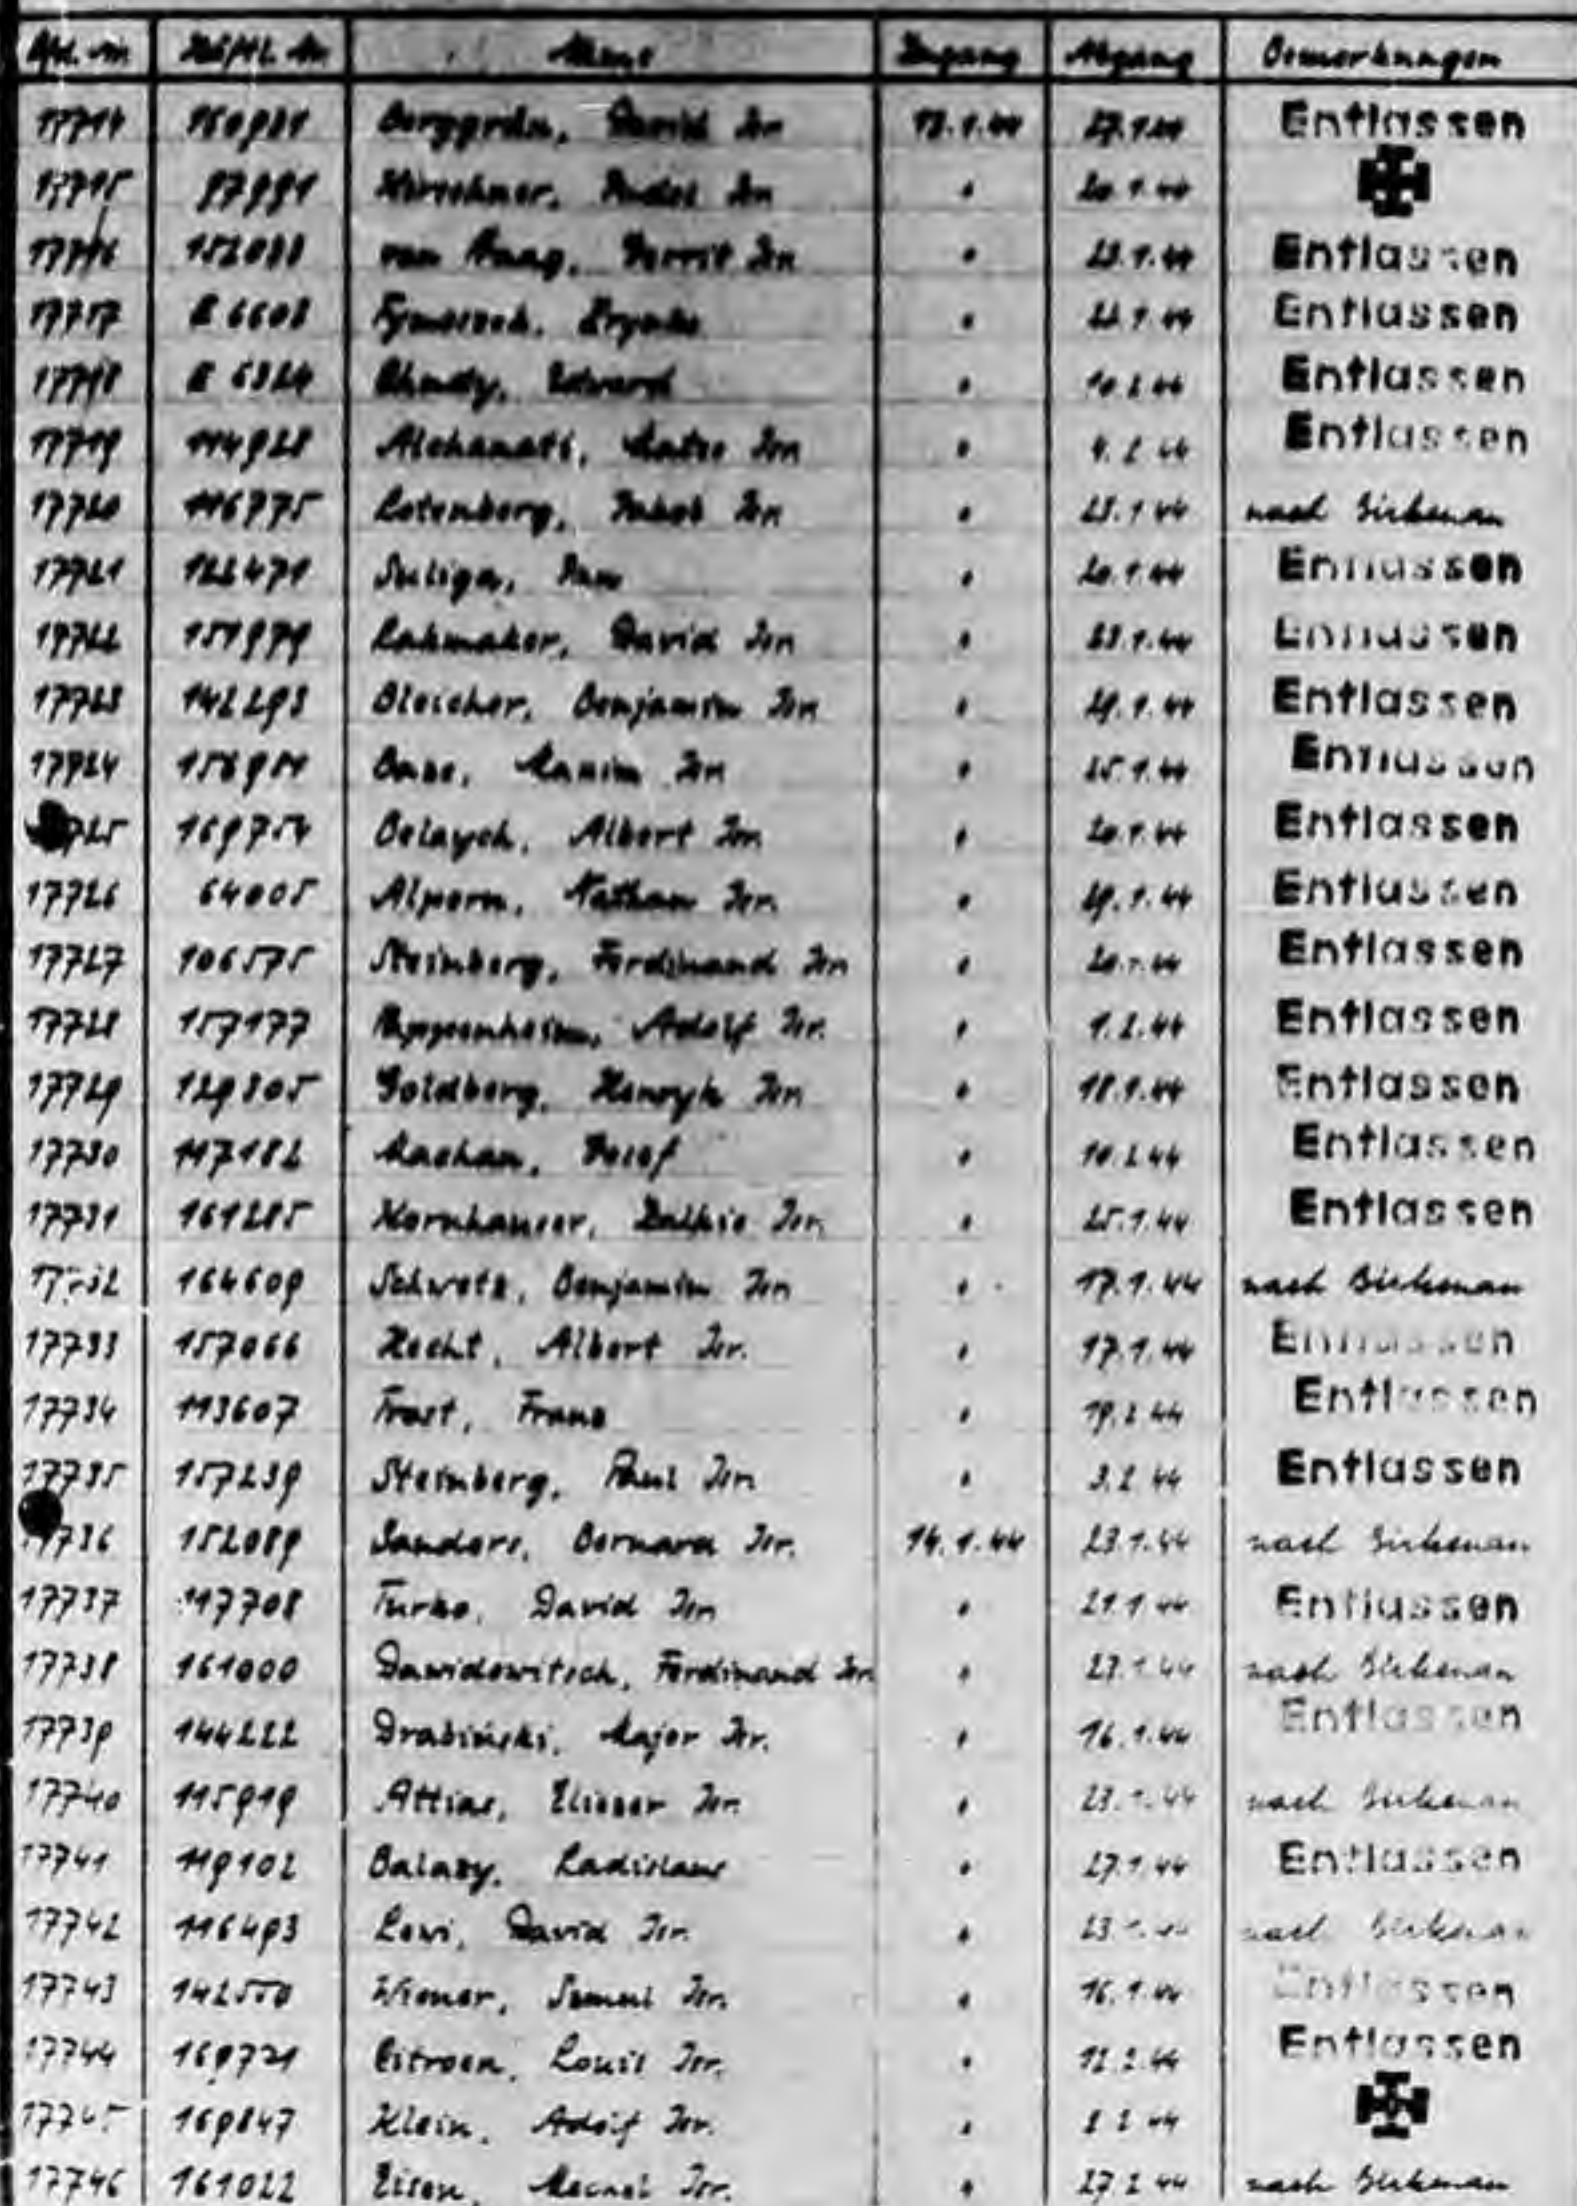 Lfd. Nr. Häftl. Nr. Name Zugang Abgang Bemerkungen
17714 160981 Berggrün, David Isr. 13.1.44 27.1.44 Entlassen
17715 Isr. " 20.1.44
17716 152088 van Praag, Gerrit Isr. " 23.1.44 Entlassen
17717 R 6608 " Entlassen
17718 R 6324 Edward " 10.2.44 Entlassen
17719 114928 Alchanati, Isr. " 4.2.44 Entlassen
17720 116775 Rotenberg, Jakob Isr. " 23.1.44 nach Birkenau
17721 122471 Suliga, Jan " 20.1.44 Entlassen
17722 151979 Rakmaker, David Isr. " 23.1.44 Entlassen
17723 142293 Bleicher, Benjamin Isr. " 29.1.44 Entlassen
17724 Isr. " 25.1.44 Entlassen
725 169754 Belaych, Albert Isr. " 20.1.44 Entlassen
17726 64005 Alpern, Nathan Isr. " 29.1.44 Entlassen
17727 106575 Steinberg, Ferdinand Isr. " 20.1.44 Entlassen
17728 157177 Adolf Isr. " 1.2.44 Entlassen
17729 129805 Goldberg, Henryk Isr. " 18.1.44 Entlassen
17730 117182 Machan, Josef " 10.2.44 Entlassen
17731 161285 Kornhauser, Isr. " 25.1.44 Entlassen
17732 164609 Schwetz, Benjamin Isr. " 17.1.44 nach Birkenau
17733 157066 Hecht, Albert Isr. " 17.1.44 Entlassen
17734 113607 Trost, Franz " 19.2.44 Entlassen
17735 157239 Steinberg, Paul Isr. " 3.2.44 Entlassen
17736 152089 Sanders, Bernard Isr. 14.1.44 23.1.44 nach Birkenau
17737 117708 Turko, David Isr. " 21.1.44 Entlassen
17738 161000 Dawidowitsch, Ferdinand Isr. " 23.1.44 nach Birkenau
17739 144222 Drabiński, Major Isr. " 16.1.44 Entlassen
17740 115919 Attias, Eliezer Isr. " 23.1.44 nach Birkenau
17741 119102 Balazy, Ladislaus " 27.1.44 Entlassen
17742 116493 Levi, David Isr. " 23.1.44 nach Birkenau
17743 142550 Wiener, Samuel Isr. " 16.1.44 Entlassen
17744 169721 Citroen, Louis Isr. " 12.2.44 Entlassen
17745 169847 Klein, Adolf Isr. " 2.44
17746 161022 Eisen, Isr. " 27.2.44 nach Birkenau